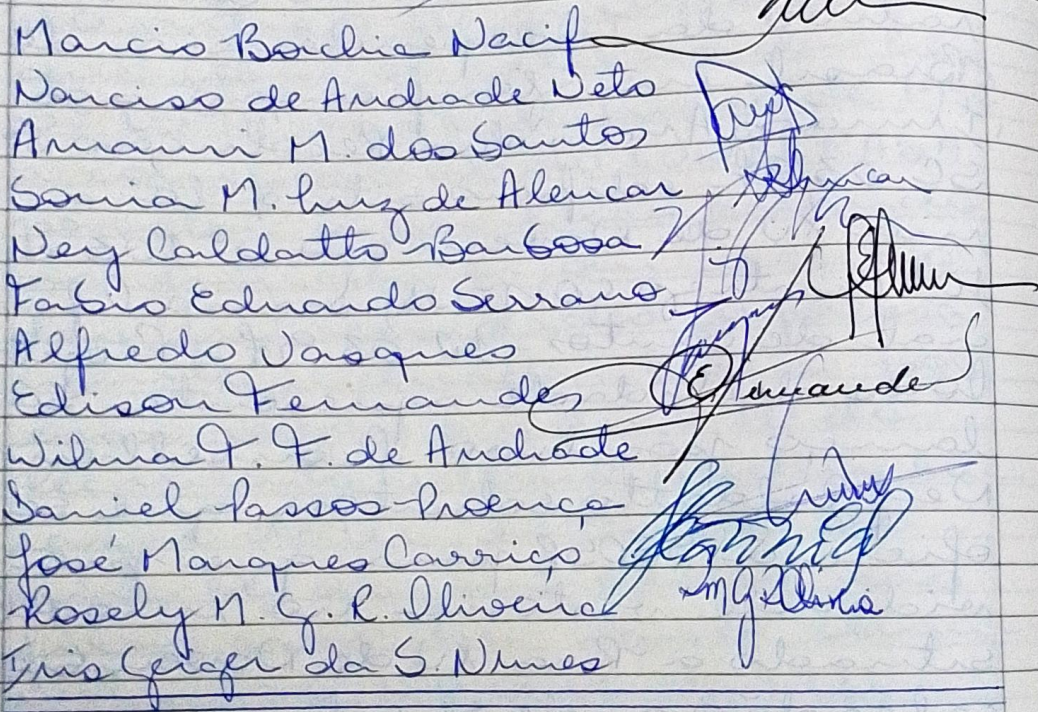 Marcio Borchia Nacif
Narciso de Andrade Neto
Amauri M. dos Santos
Sonia M. Luz de Alencar
Ney Caldatto Barbosa
Fabio Eduardo Serrano
Alfredo Vasques
Edison Fernandes EFernandes
Wilma T. F. de Andrade
Daniel Passos Proença
José Marques Carriço
Rosely M. G. R. Oliveira
Geiger da S. Nunes